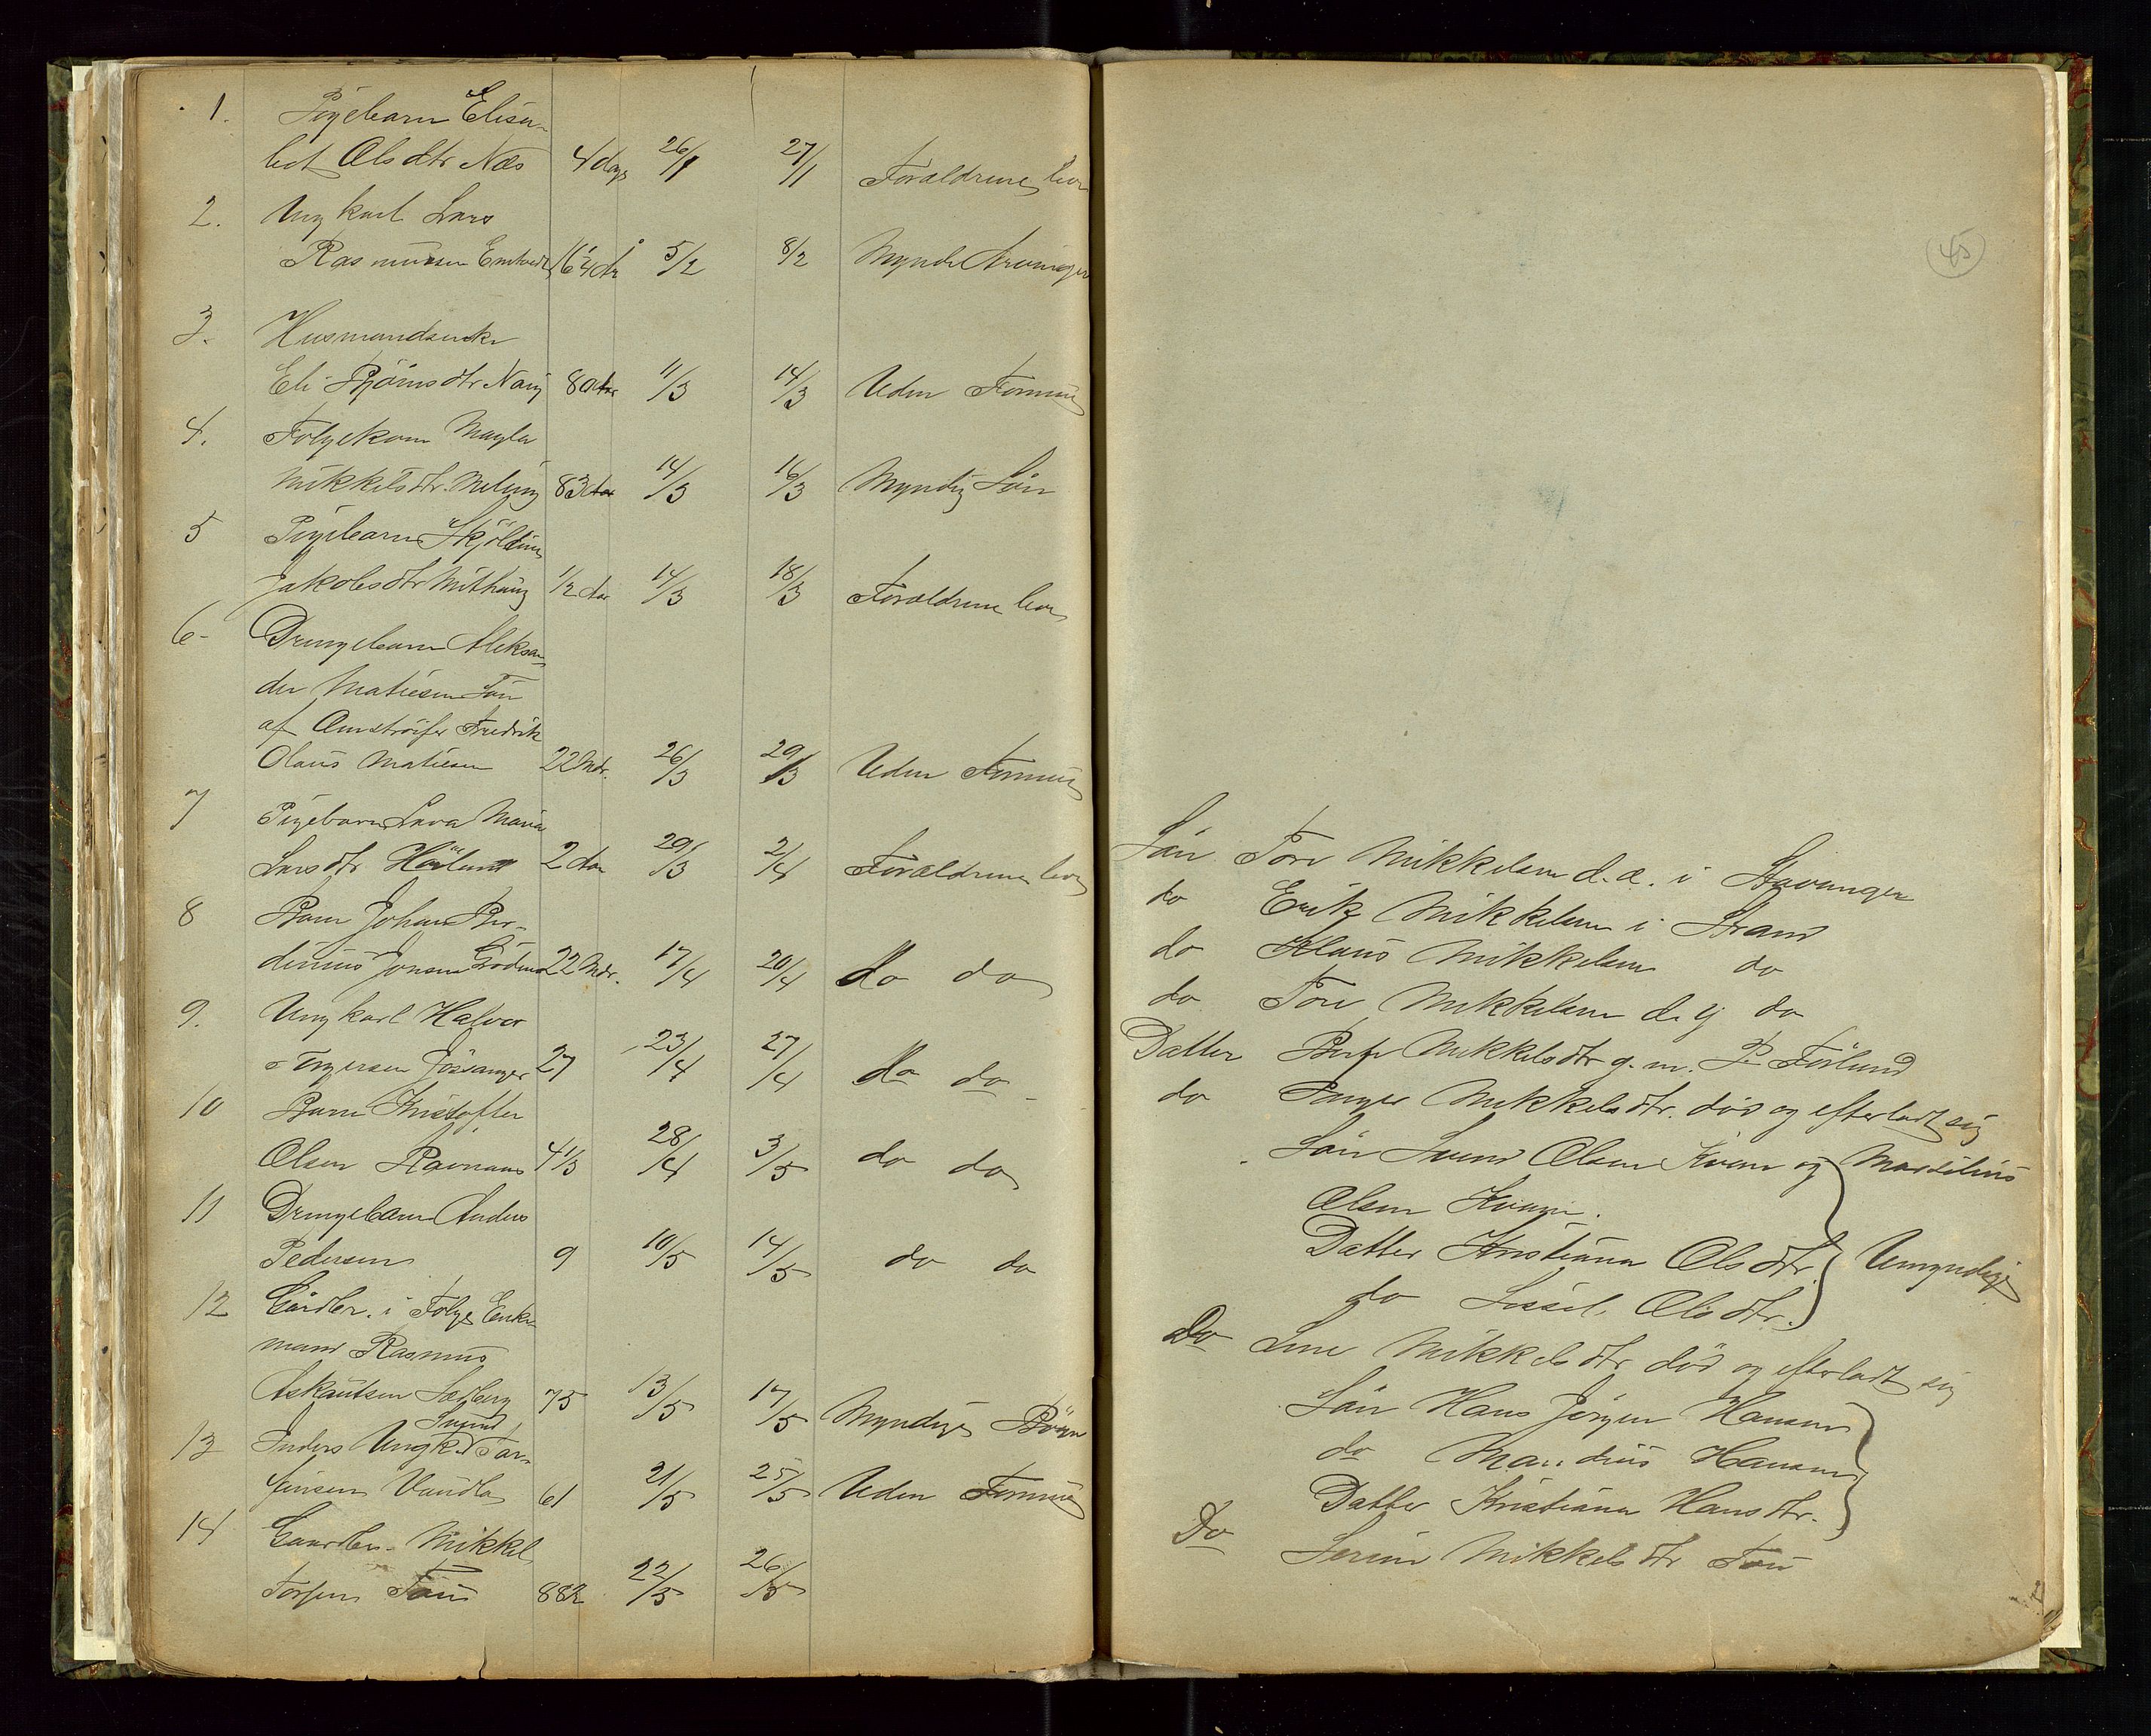 1. Pigebarn Elisa-
bet Olsdtr Næs 4 dage 26/1 27/1 Forældrene lever
2. Ungkarl Lars
Rasmussen 16 1/4 Aar 5/2 8/2 Myndige Arvinger
3. Husmandsenke
Eli Bjørnsdtr Nag 80 Aar 11/3 14/3 Uden Formue
4. Følgekone Magla
Mikkelsdtr. Meling 83 Aar 14/3 16/3 Myndig Søn
5 Pigebarn
Jakobsdtr 1/2 Aar 14/3 18/3 Forældrene lever
6- Drengebarn Aleksan-
der Matiesen Tou
af Fredrik
Olaus Matiesen 22 Mdr. 26/3 29/3 Uden Formue
7 Pigebarn Lava Maria
Larsdtr 2 Aar 29/3 2/4 Forældrene lever
8 Barn Johan Ber-
dinius Jonsen 22 Mdr. 17/4 20/4 do do
9. Ungkarl Halvor
Jøssanger 27 23/4 27/4 do do
10 Barn Kristoffer
Olsen 4 1/3 28/4 3/5 do do
11 Drengebarn Anders
Pedersen 9 10/5 14/5 do do
12 Gårdbr. i Følge Enke-
mand Rasmus
Askautsen Solberg 75 13/5 17/5 Myndige Børn
Svend
13 Inders Ungk. Tor-
Vaudla 61 21/5 25/5 Uden Formue
14 Gaardbr. Mikkel
Torsen Tou 88 1/2 22/5 26/5
45
Søn Tore Mikkelsen d.æ. i Stavanger
do Erik Mikkelsen i Strand
do Klaus Mikkelsen do
do Tore Mikkelsen d.y do
Datter Berte Mikkelsdtr g.m. P Førlund
do Mikkelsdtr. død og efterladt sig
Søn Svend Olsen Kvam og Martilius
Olsen Kvam.
Datter Kristiana Olsdtr. Umyndige
do Sissel Olsdtr.
Do Line Mikkelsdtr død og efterladt sig
Søn Hans Jørgen Hansen
do Hansen
Datter Kristiana Hansdtr.
Do Serine Mikkelsdtr Tou